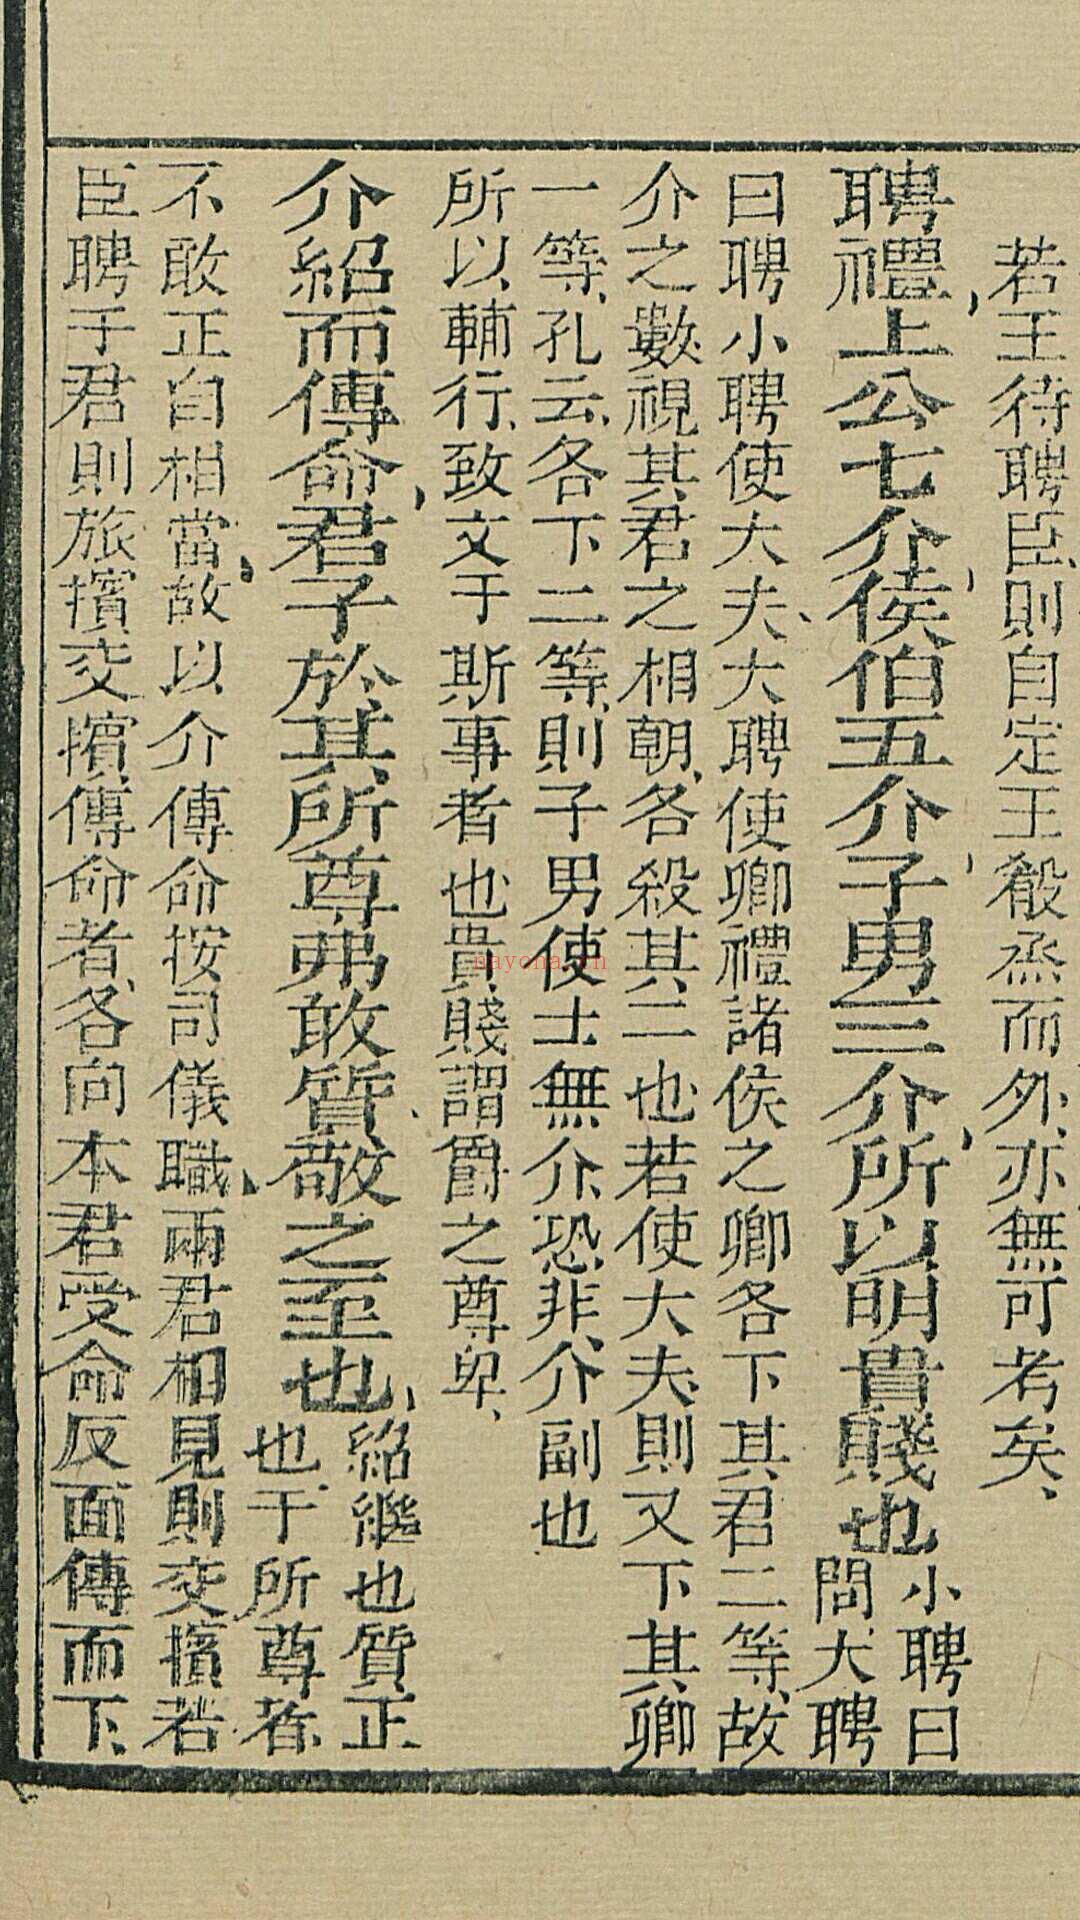 若王待聘臣、則自定王殽烝而外、亦無可考矣、
聘禮、上公七介、侯伯五介、子男三介、所以明貴賤也小聘曰
問、大聘
曰聘小聘使大夫、大聘使卿禮諸侯之卿各下其君二等、故
介之數視其君之相朝、各殺其二也若使大夫、則又下其卿
一等、孔云、各下二等、則子男使士無介、恐非、介副也
所以輔行、致文于斯事者也貴賤謂爵之尊卑、
介紹而傳命、君子於其所尊弗敢質、敬之至也、紹繼也質正
也、于所尊者、
不敢正自相當、故以介傳命按司儀職、兩君相見則交擯若
臣聘于君則旅擯交擯、傳命者、各向本君受命反面傳而下、
nayona.cn